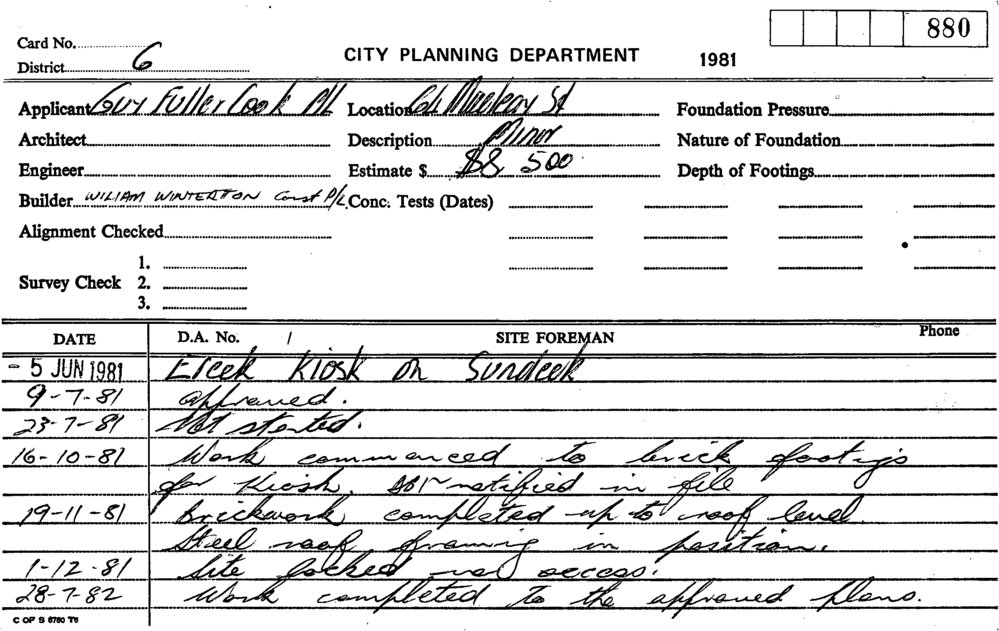 880
Card No.
District 6
CITY PLANNING DEPARTMENT 1981
Applicant Guy Fuller Cook P/L Location Macleay St Foundation Pressure
Architect Description Minor Nature of Foundation
Engineer Estimate $ $8 500 Depth of Footings
Builder WILIAM WINTERTON Const P/L Conc. Tests (Dates)
Alignment Checked
1.
Survey Check 2.
3.
DATE D.A. No. / SITE FOREMAN Phone
- 5 JUN 1981 Ereck Kiosk on Sundeck
9-7-81 approved.
23-7-81 Not started.
16-10-81 Work commenced to brick footigs
for Kiosk. notified in file
19-11-81 Brickwork completed up to roof level.
Steel roof framing in position.
1-12-81 Site locked no access.
28-7-82 Work completed to the approved plans.
C OF S 6780 T6